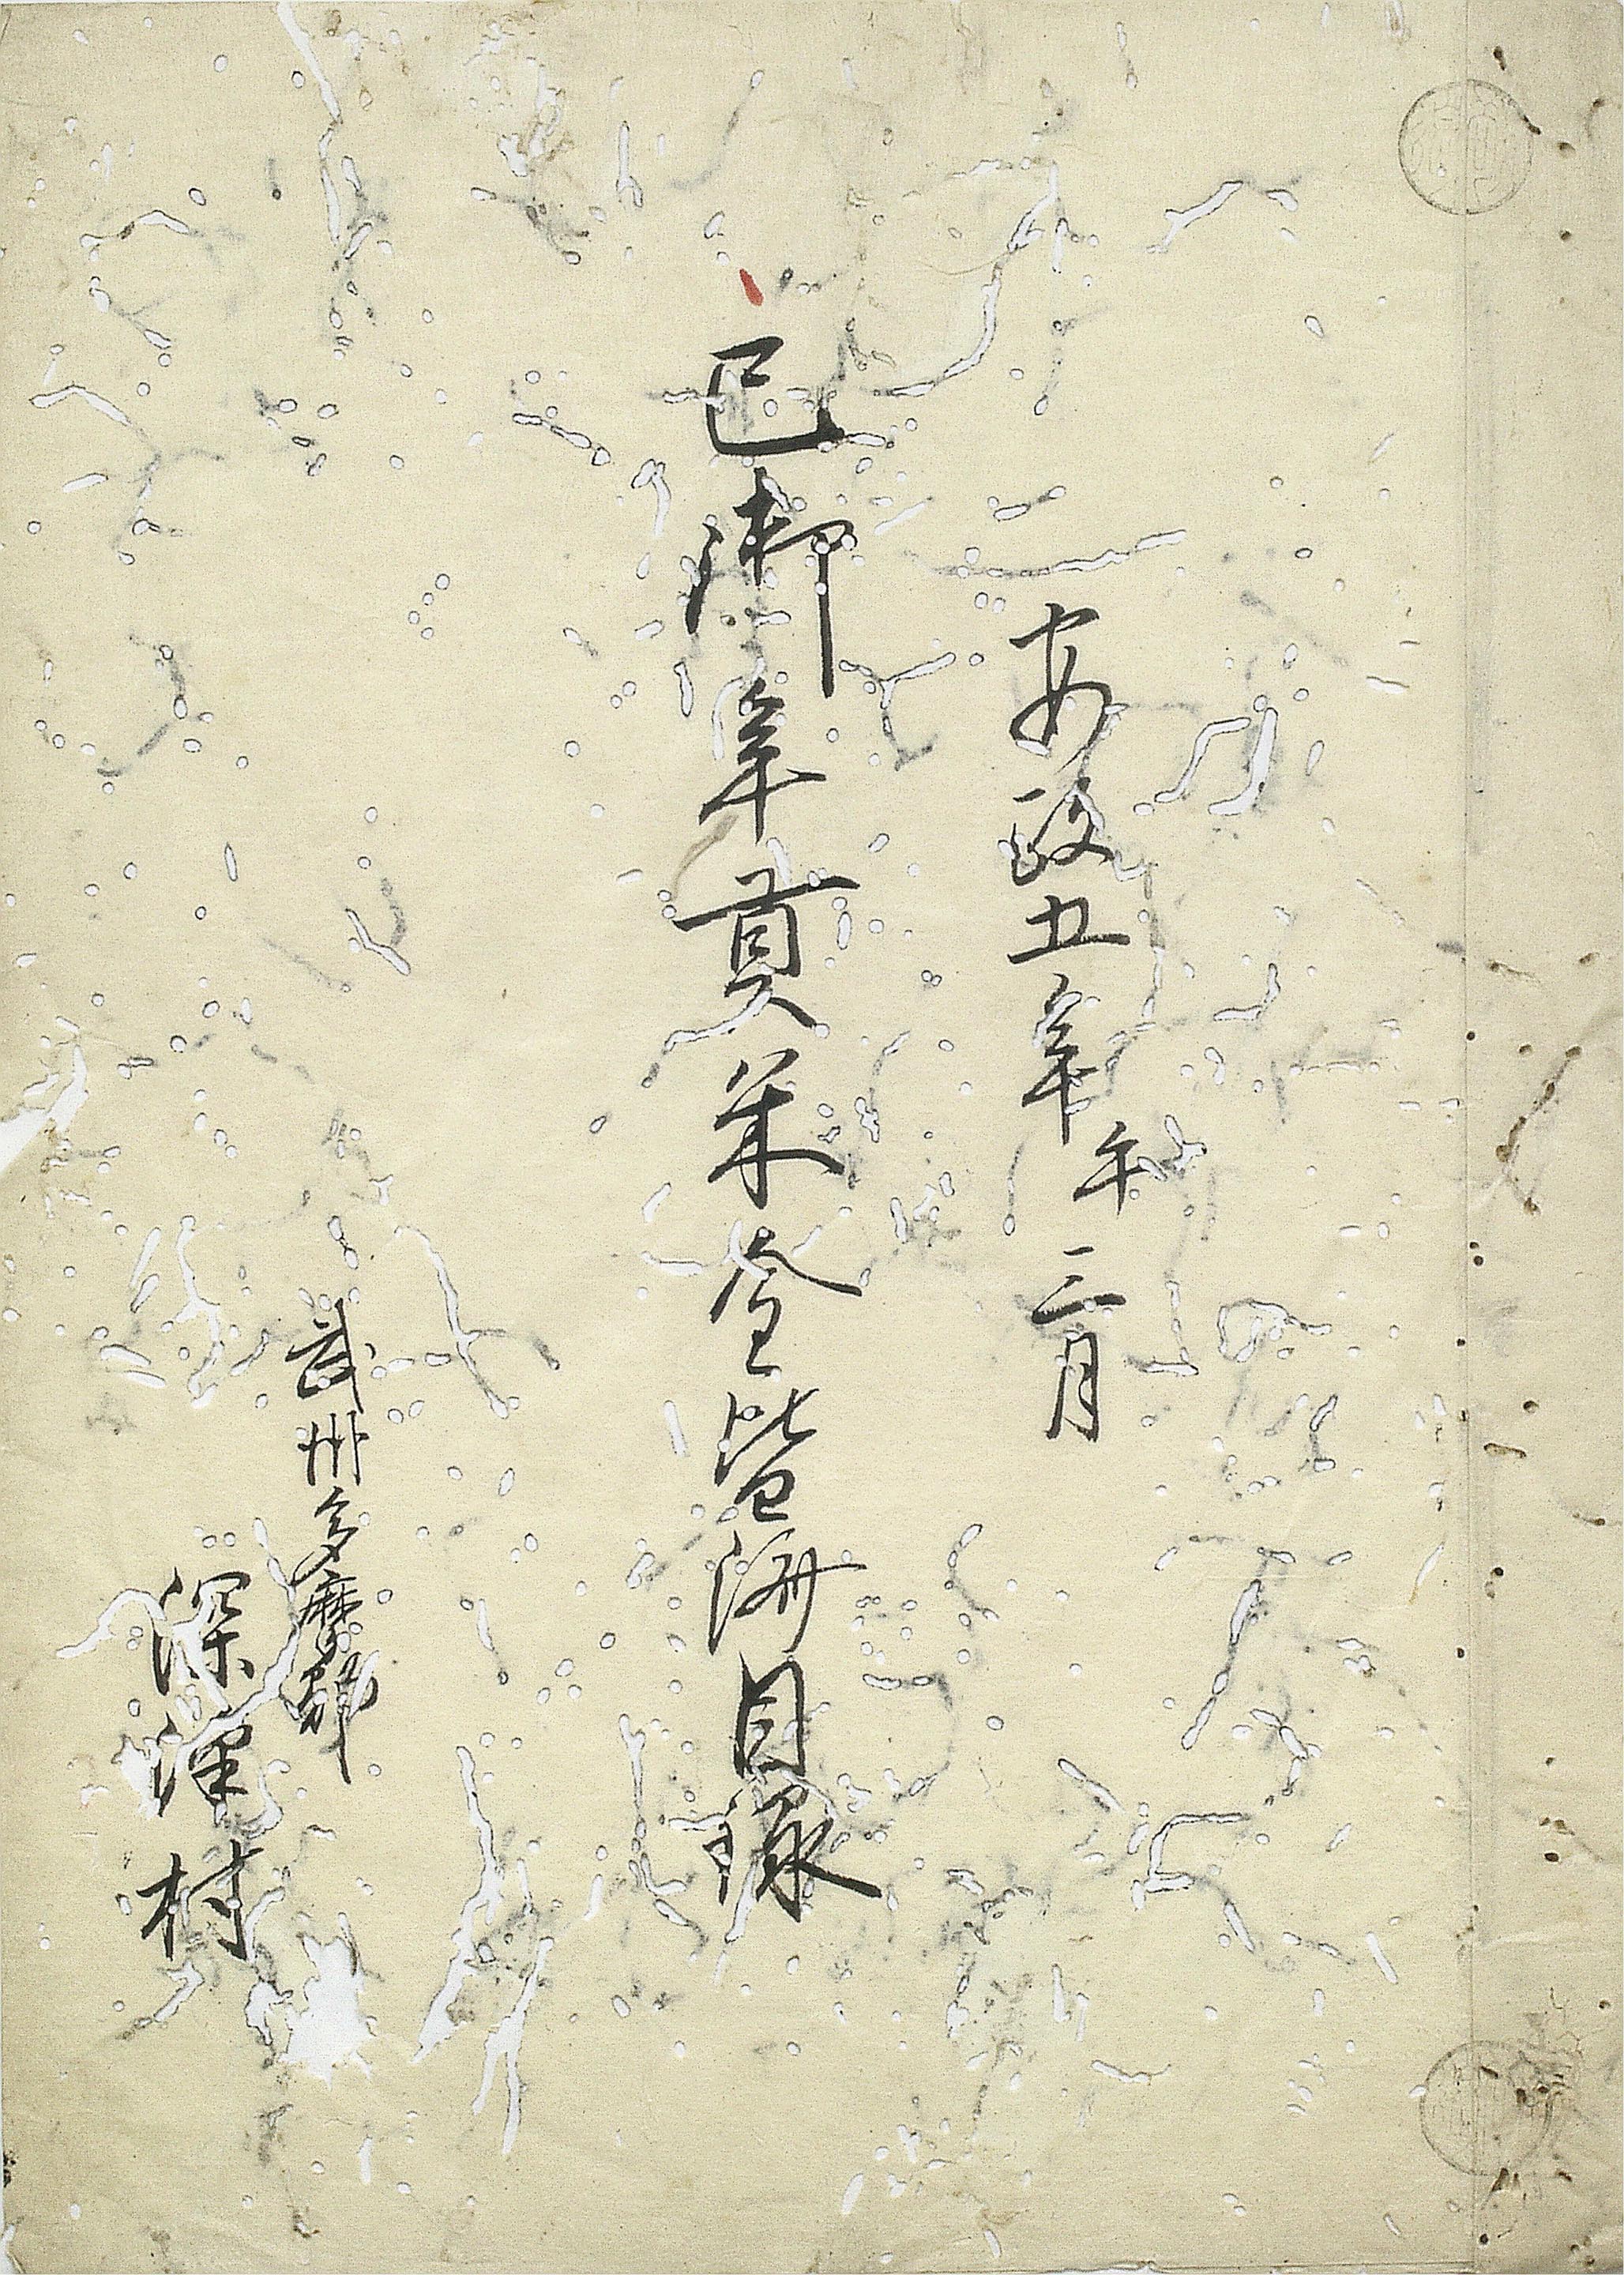 安政五年午三月
巳御年貢米金皆済目録
武州多摩郡
深澤村